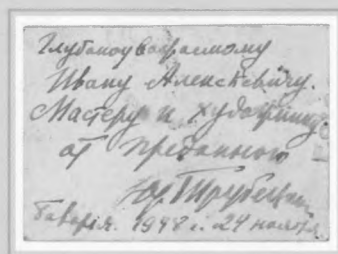 Глубокоуважаемому
Ивану Алексеевичу.
Мастеру и художнику
от преданного
Юр. Трубецкой
Бавария. 1948 г. 24 ноября